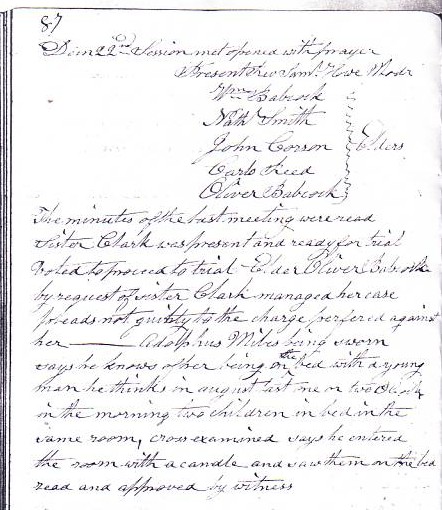 87
22nd Session met opened with prayer
Present Rev Saml Howe Modr
Wm Babcock
Nath Smith
John Corson Elders
Carlo Reed
Oliver Babcock
The minutes of the last meeting were read
Sister Clark was present and ready for trial
Voted to proceed to trial - Elder Oliver Babcock
by request of sister Clark managed her case
pleads not guilty to the charge perfered against
her — Adolphus being sworn
says he knows of her being on the bed with a young
man he thinks in august last one or two Oclock
in the morning two children in bed in the
same room, cross examined says he entered
the room with a candle and saw them on the bed
read and approved by witness